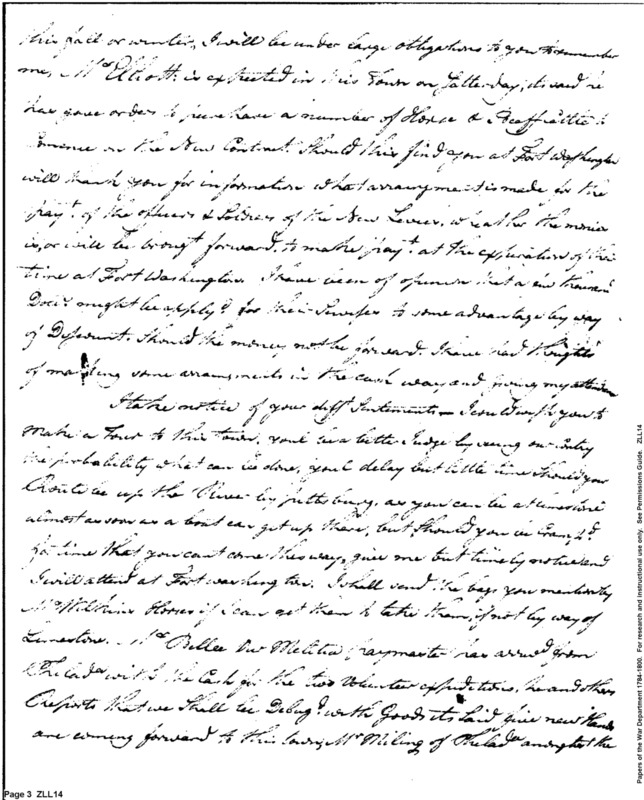 this fall or winter, I will be under large obligations to you to remember
me, Mr Elliott is expected in this Town on Satterday, its said he
has gave orders to purchase a number of Horses & Beeff Cattle to
Comence on the New Contract. Should this find you at Fort Washington
will thank you for information what arrangement is made for the
payt. of the officers & Soldiers of the New Levies, wheather the monies
is, or will be brougt forward, to make payt. at the expiration of their
time at Fort Washington. I have been of openion that a few thousand
might be applyd. for their Services to some advantage by way
of Discount. Should the money not be forward. I have had thoughts
of making some arrangements in the cash way and giving my attention
I take notice of your difft. Sentements - I could wish you to
make a Tour to this town, youl be a bette Judge by seeing our Contry
the probability what can be done, youl delay but little time should your
Route be up the River by pittsburg, as you can be at Limestone
almost as soon as a boat can get up there, but should you be
for time that you cant come this way, give me but timely notice and
I will attend at Fort washington. I shall send the bags you mention by
Mr Wilkins Horses if I can get them to take them, if not by way of
Limestone. Mr our Melitia paymaster has arived from
Philada with the Cash for the two Volunteer expeditions, he and others
Reports that we shall be Delugd. with Goods, its said five new Hands
are coming forward to this town, Mr of Philada amongst the
Page 3 ZLL14
Papers of the War Department 1784-1800. For research and instructional use only. See Permissions Guide. ZLL14